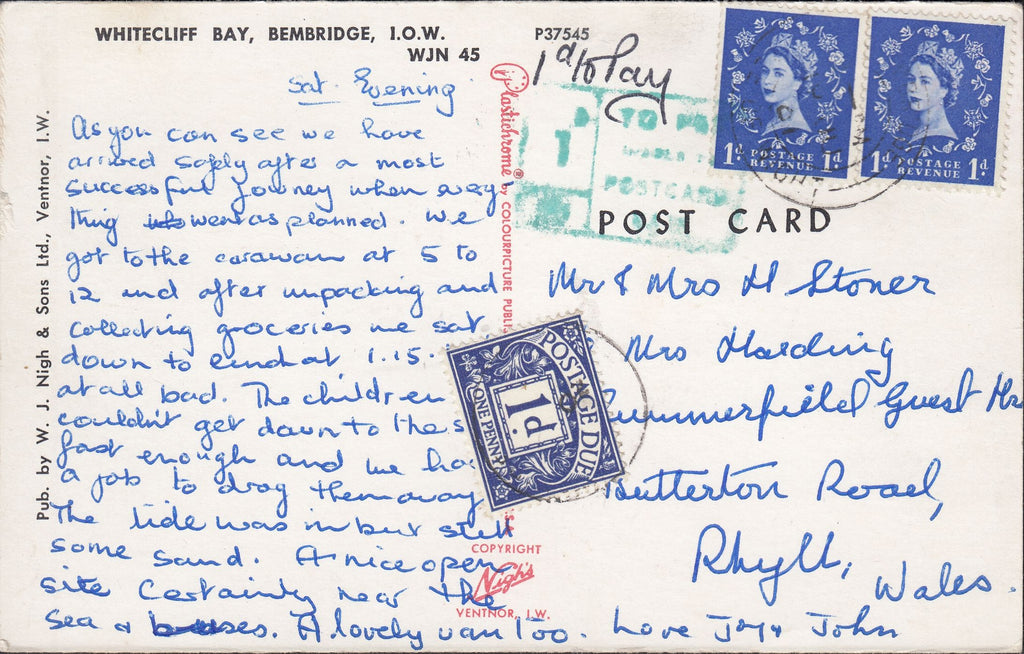 WHITECLIFF BAY, BEMBRIDGE, I.O.W.
WJN 45
P37545
1d to Pay
Sat. Evening
As you can see we have
arrived safely after a most
successful journey when every
thing went as planned. We
got to the caravan at 5 to
12 and after unpacking and
collecting groceries we sat
down to lunch at 1.15.
at all bad. The children
couldn't get down to the s
fast enough and we ha
a job to drag them away
The tide was in but still
some sand. A nice open
site certainly near the
sea & buses. A lovely van too. Love Joy & John
Pub. by W. J. Nigh & Sons Ltd., Ventnor, I.W.
Plastichrome® by COLOURPICTURE PUBLI
SA
COPYRIGHT
Nigh's
VENTNOR, I.W.
1d TO PA
POSTCARD
1d. POSTAGE REVENUE 1d.
1d. POSTAGE REVENUE 1d.
POST CARD
Mr & Mrs H Stoner
Mrs Harding
Summerfield Guest Hse
Butterton Road,
Rhyll,
Wales.
POSTAGE DUE
1d.
ONE PENNY